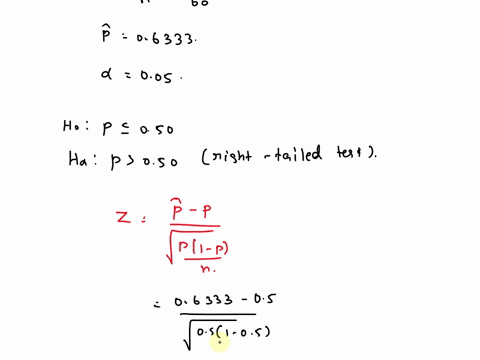 60
p̂ = 0.6333.
α = 0.05.
Ho: p ≤ 0.50
Ha: p > 0.50 (right-tailed test).
Z = p̂ - p
√p(1-p)
n.
= 0.6333 - 0.5
√0.5(1-0.5)